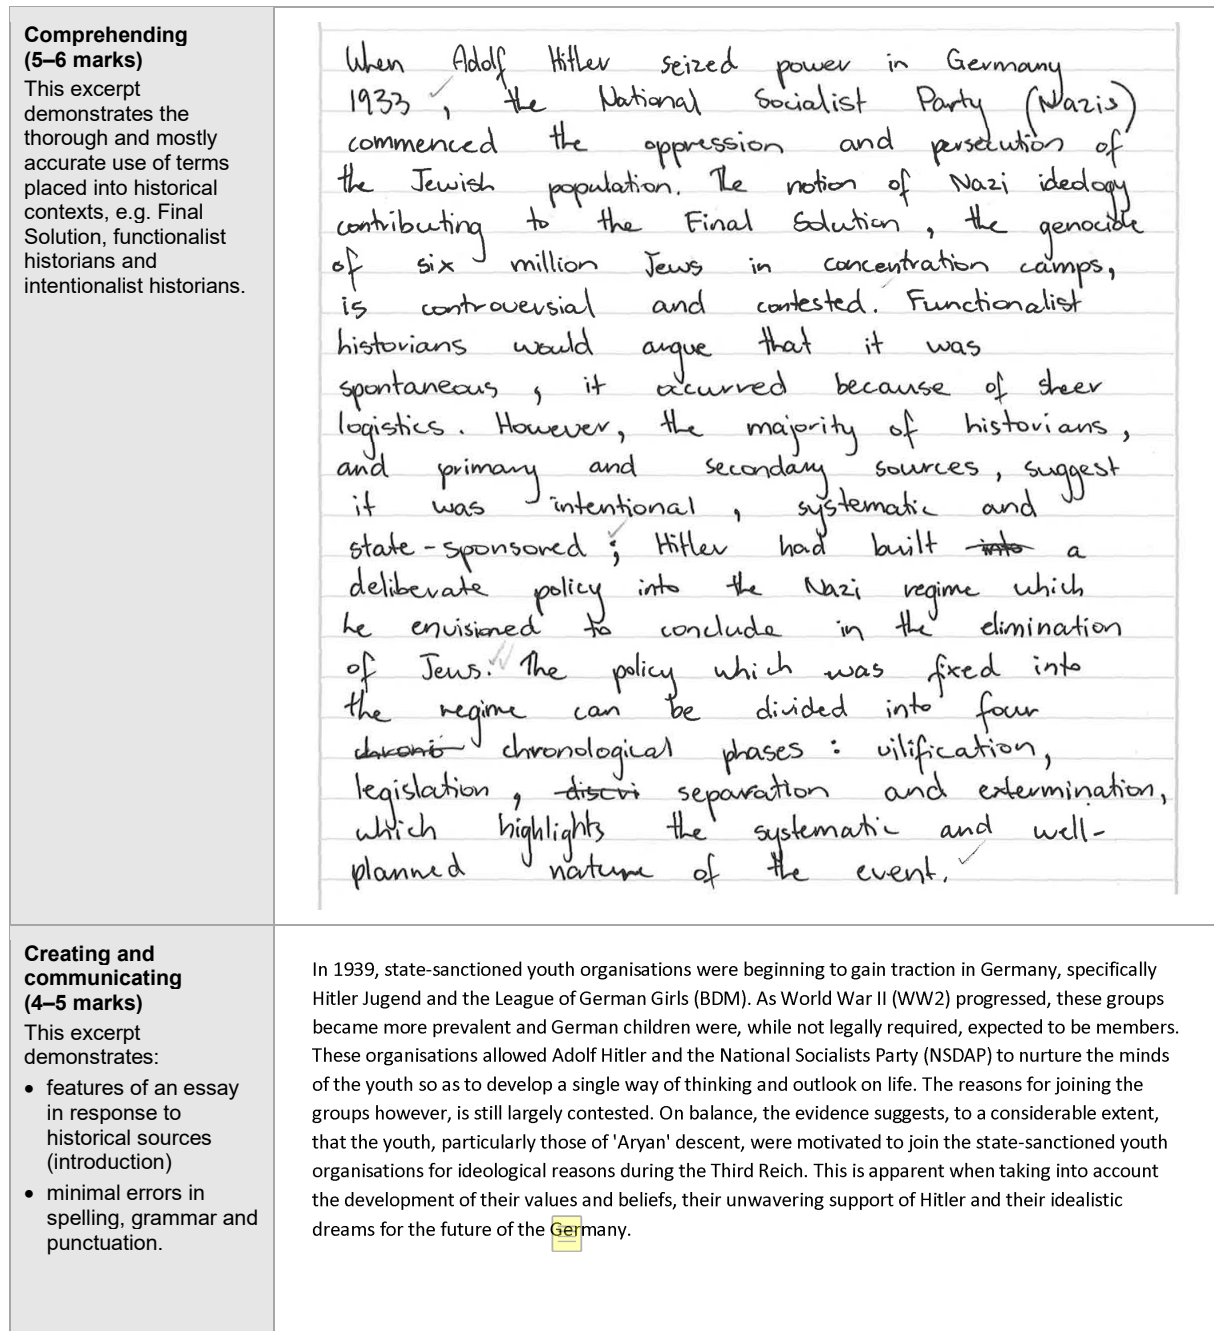 Comprehending
(5–6 marks)
This excerpt
demonstrates the
thorough and mostly
accurate use of terms
placed into historical
contexts, e.g. Final
Solution, functionalist
historians and
intentionalist historians.
When Adolf Hitler seized power in Germany
1933, the National Socialist Party (Nazis)
commenced the oppression and persecution of
the Jewish population. The notion of Nazi ideology
contributing to the Final Solution, the genocide
of six million Jews in concentration camps,
is controversial and contested. Functionalist
historians would argue that it was
spontaneous, it occurred because of sheer
logistics. However, the majority of historians,
and primary and secondary sources, suggest
it was intentional, systematic and
state-sponsored; Hitler had built into a
deliberate policy into the Nazi regime which
he envisioned to conclude in the elimination
of Jews. The policy which was fixed into
the regime can be divided into four
chrono chronological phases: vilification,
legislation, discri separation and extermination,
which highlights the systematic and well-
planned nature of the event.
Creating and
communicating
(4–5 marks)
This excerpt
demonstrates:
• features of an essay
in response to
historical sources
(introduction)
• minimal errors in
spelling, grammar and
punctuation.
In 1939, state-sanctioned youth organisations were beginning to gain traction in Germany, specifically
Hitler Jugend and the League of German Girls (BDM). As World War II (WW2) progressed, these groups
became more prevalent and German children were, while not legally required, expected to be members.
These organisations allowed Adolf Hitler and the National Socialists Party (NSDAP) to nurture the minds
of the youth so as to develop a single way of thinking and outlook on life. The reasons for joining the
groups however, is still largely contested. On balance, the evidence suggests, to a considerable extent,
that the youth, particularly those of 'Aryan' descent, were motivated to join the state-sanctioned youth
organisations for ideological reasons during the Third Reich. This is apparent when taking into account
the development of their values and beliefs, their unwavering support of Hitler and their idealistic
dreams for the future of the Germany.